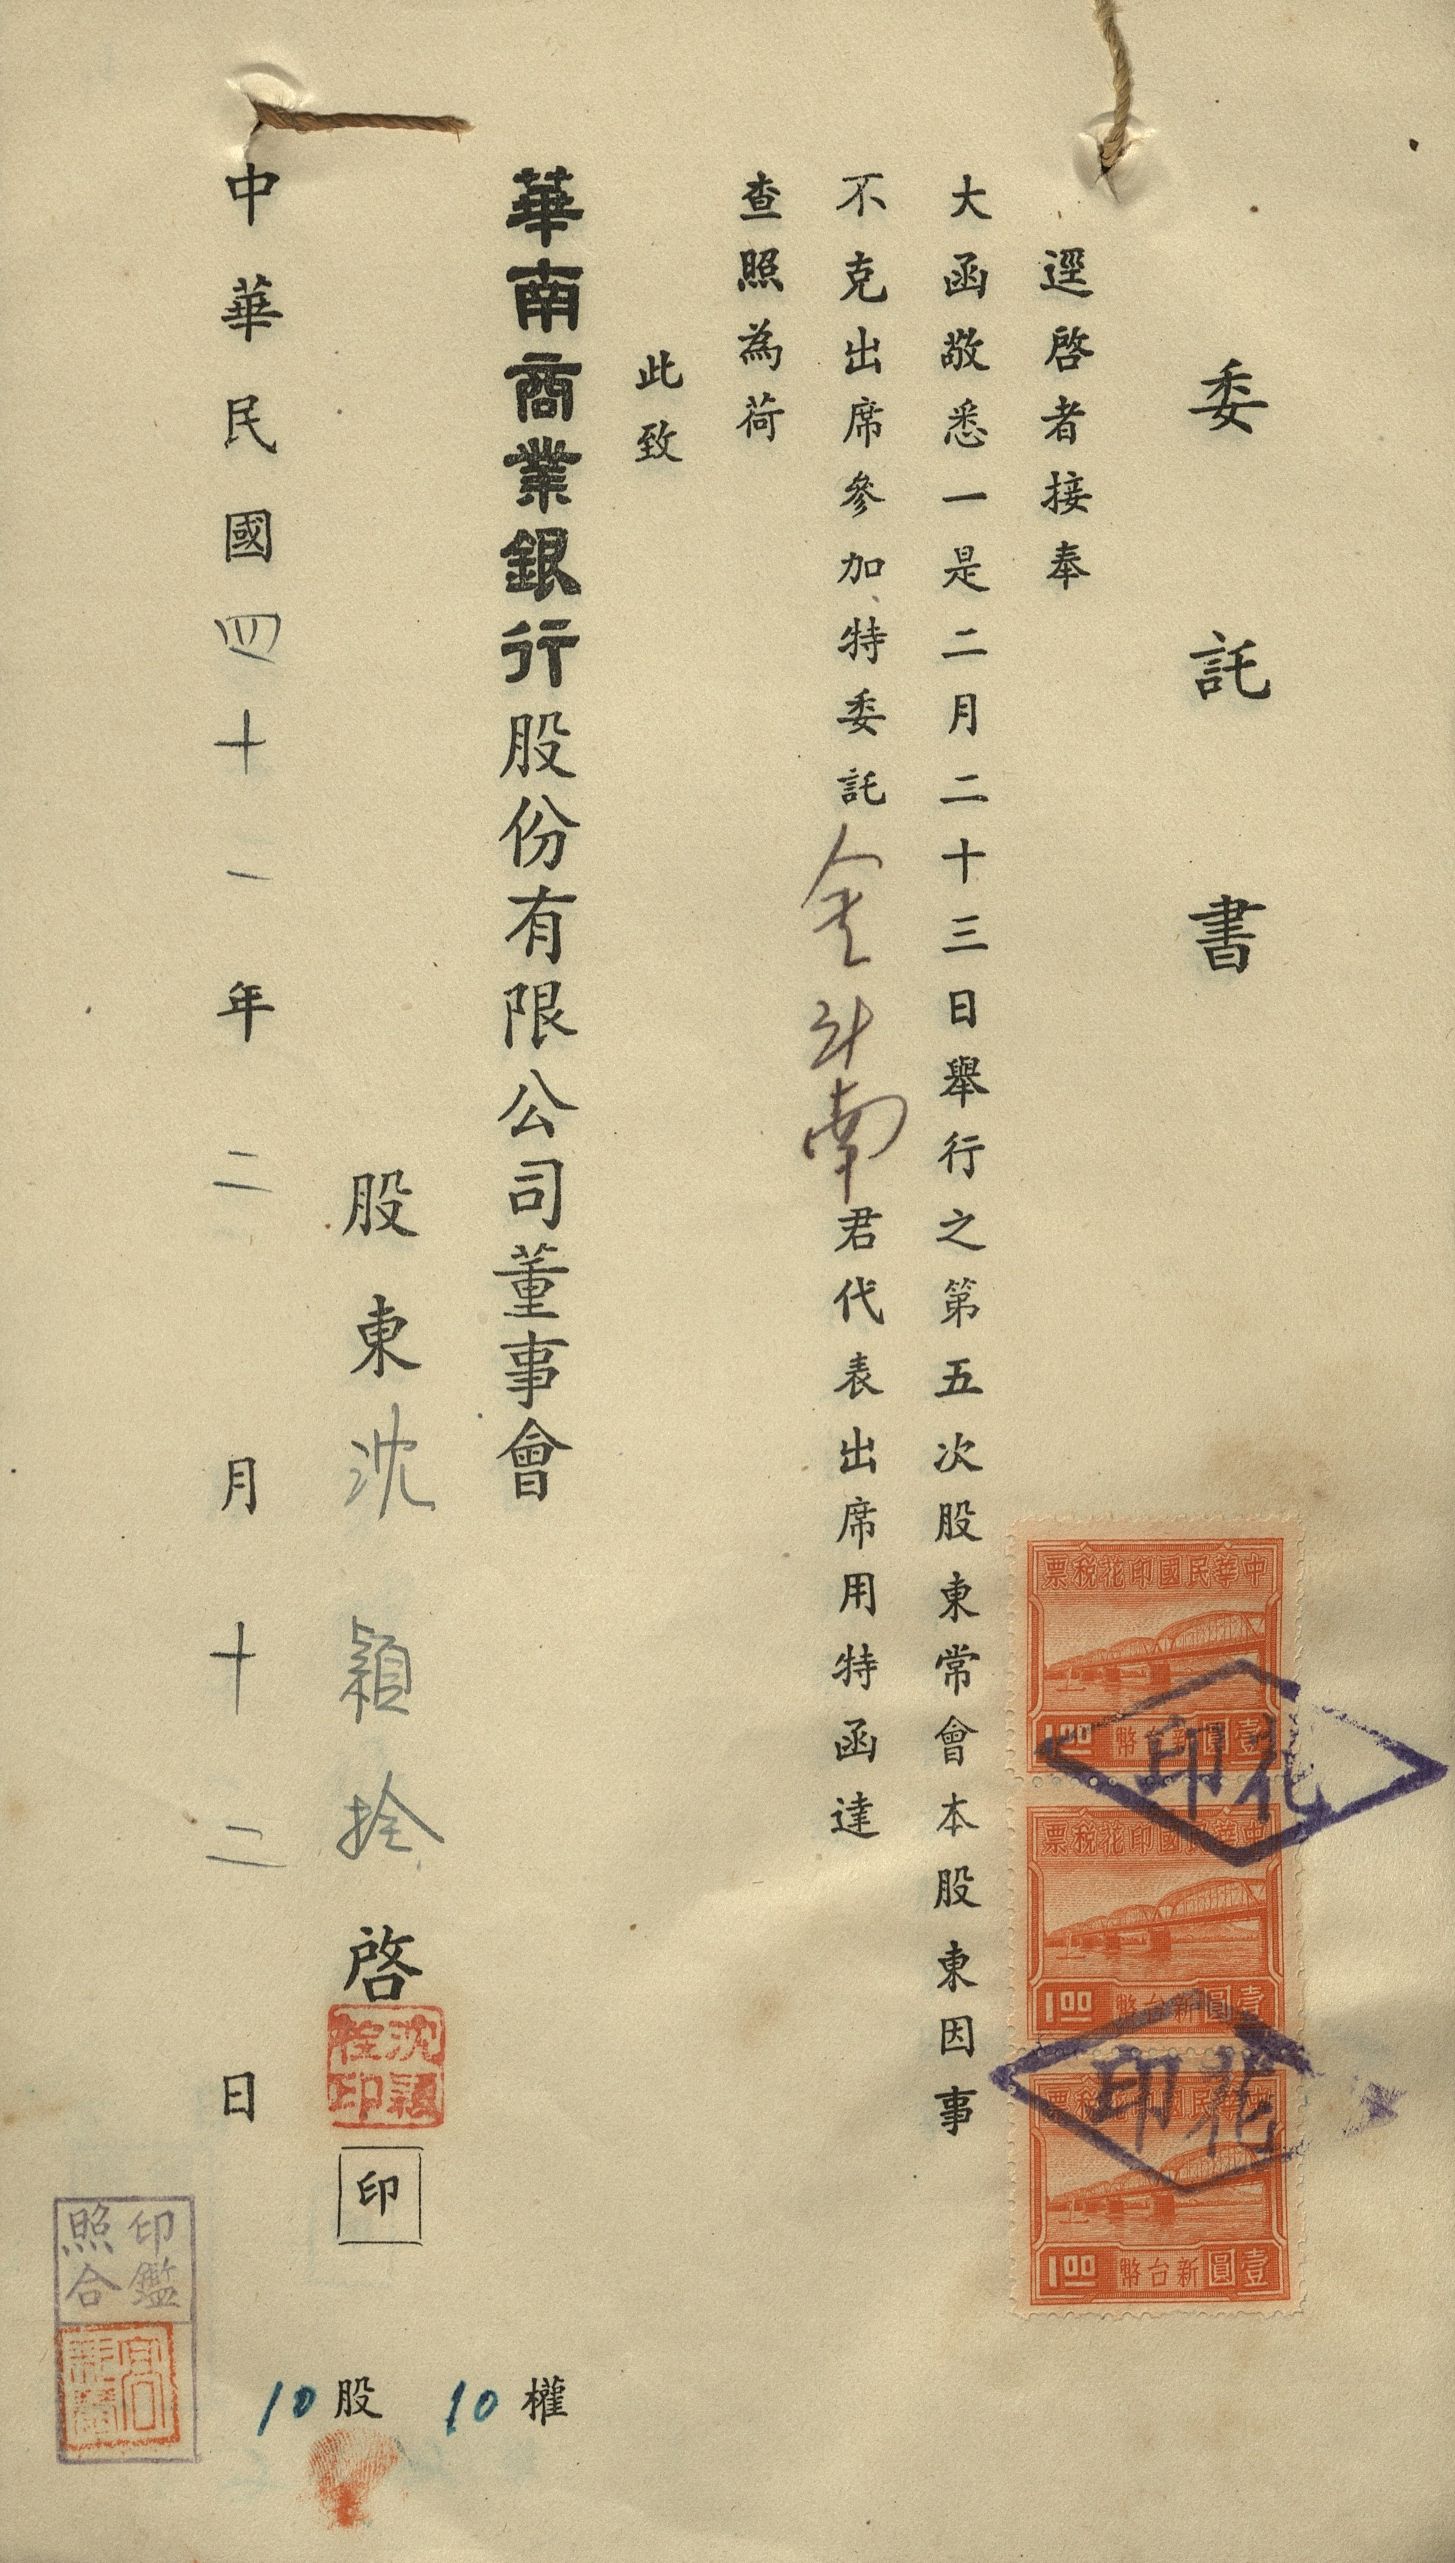 委託書
逕啓者接奉
大函敬悉一是二月二十三日舉行之第五次股東常會本股東因事
不克出席參加特委託金斗南君代表出席用特函達
查照為荷
此致
華南商業銀行股份有限公司董事會
股東沈穎拴啓
印
中華民國四十一年二月十二日
10權
10股
中華民國印花稅票
壹圓新台幣1.00
中華民國印花稅票
壹圓新台幣1.00
中華民國印花稅票
壹圓新台幣1.00
花印
花印
印鑑
照合